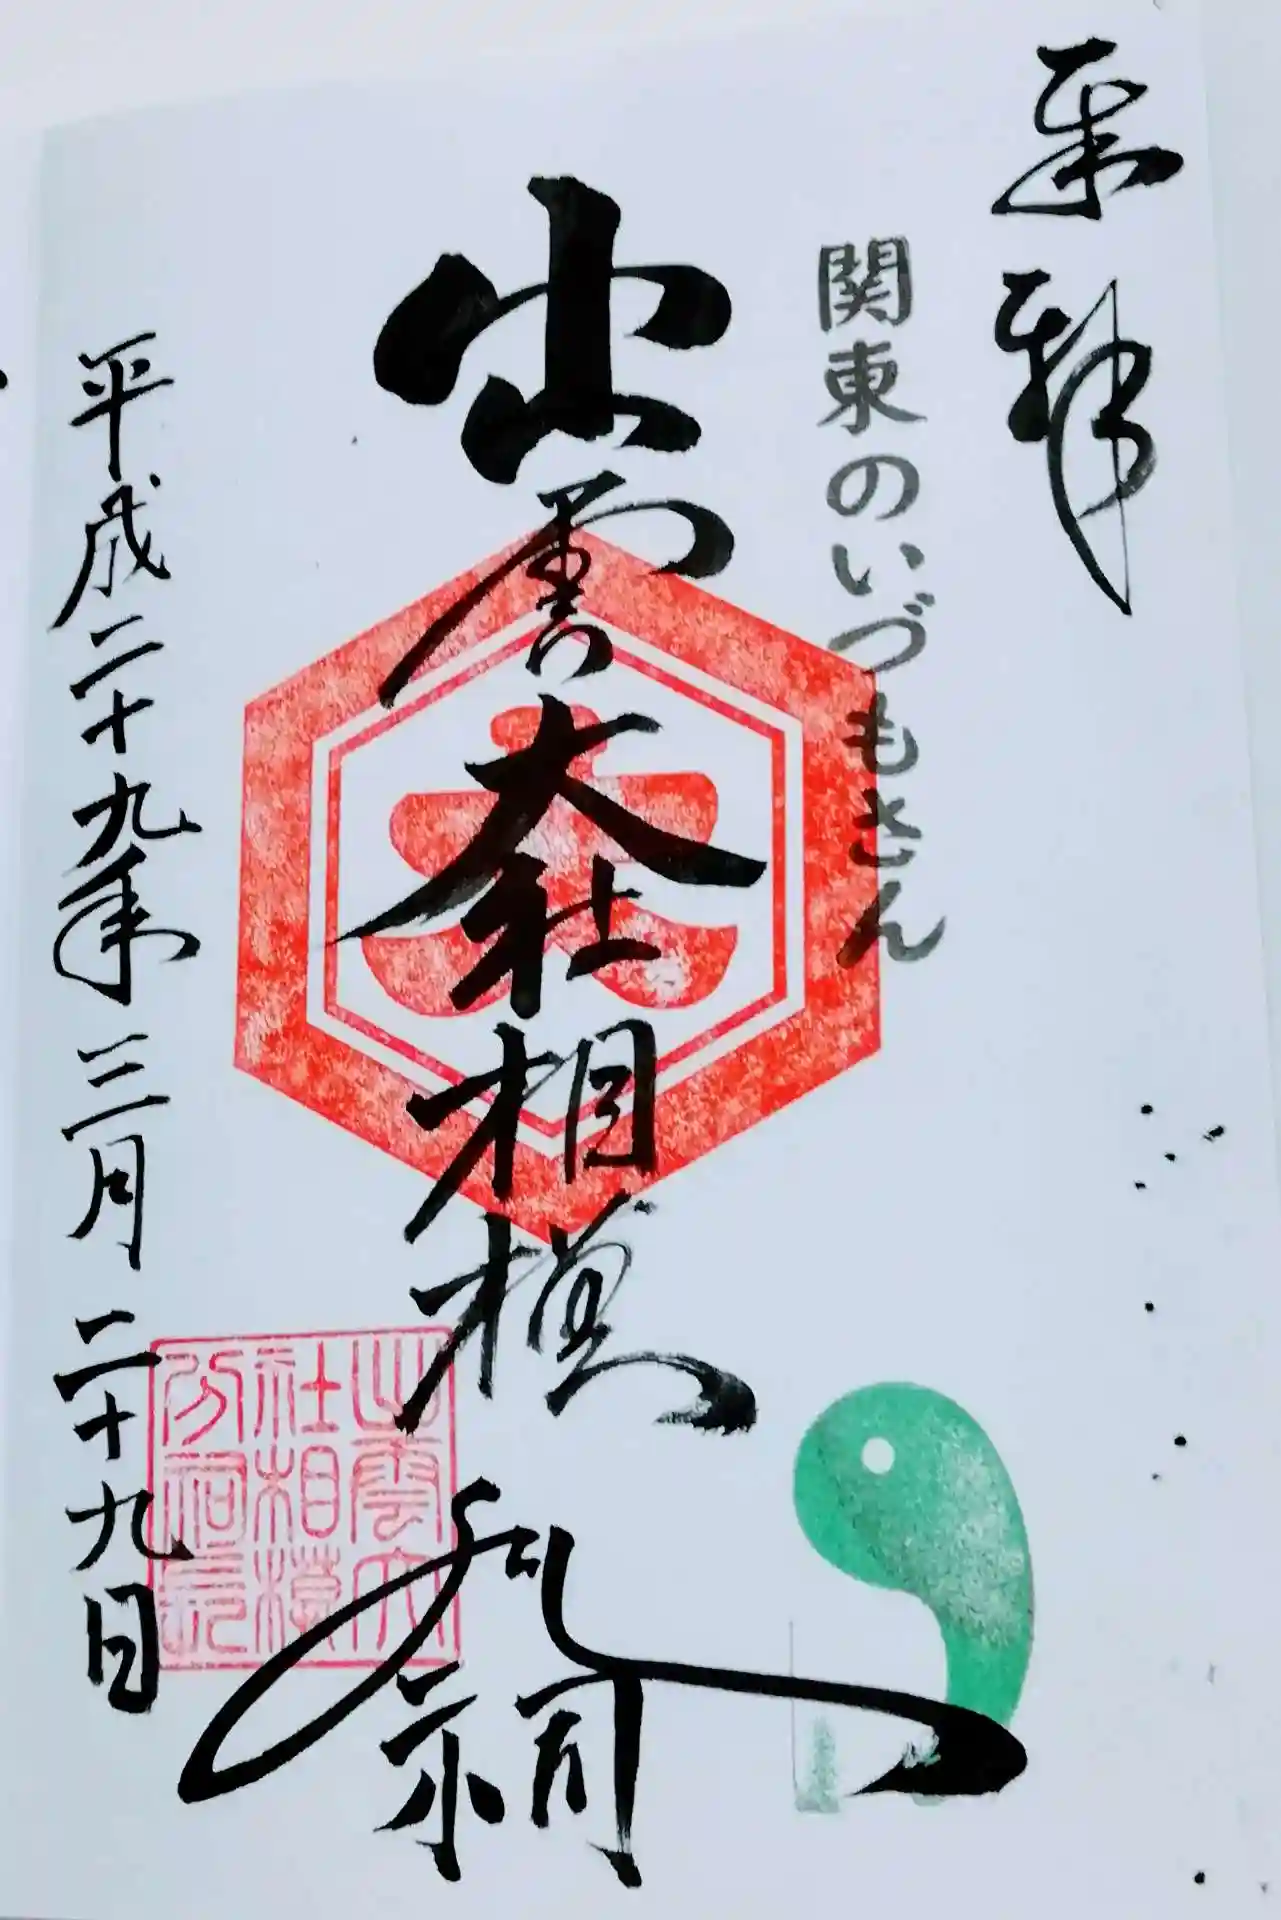 奉拝
関東のいづもさん
出雲大社相模分祠
平成二十九年三月二十九日
出雲大
社相模
分祠長